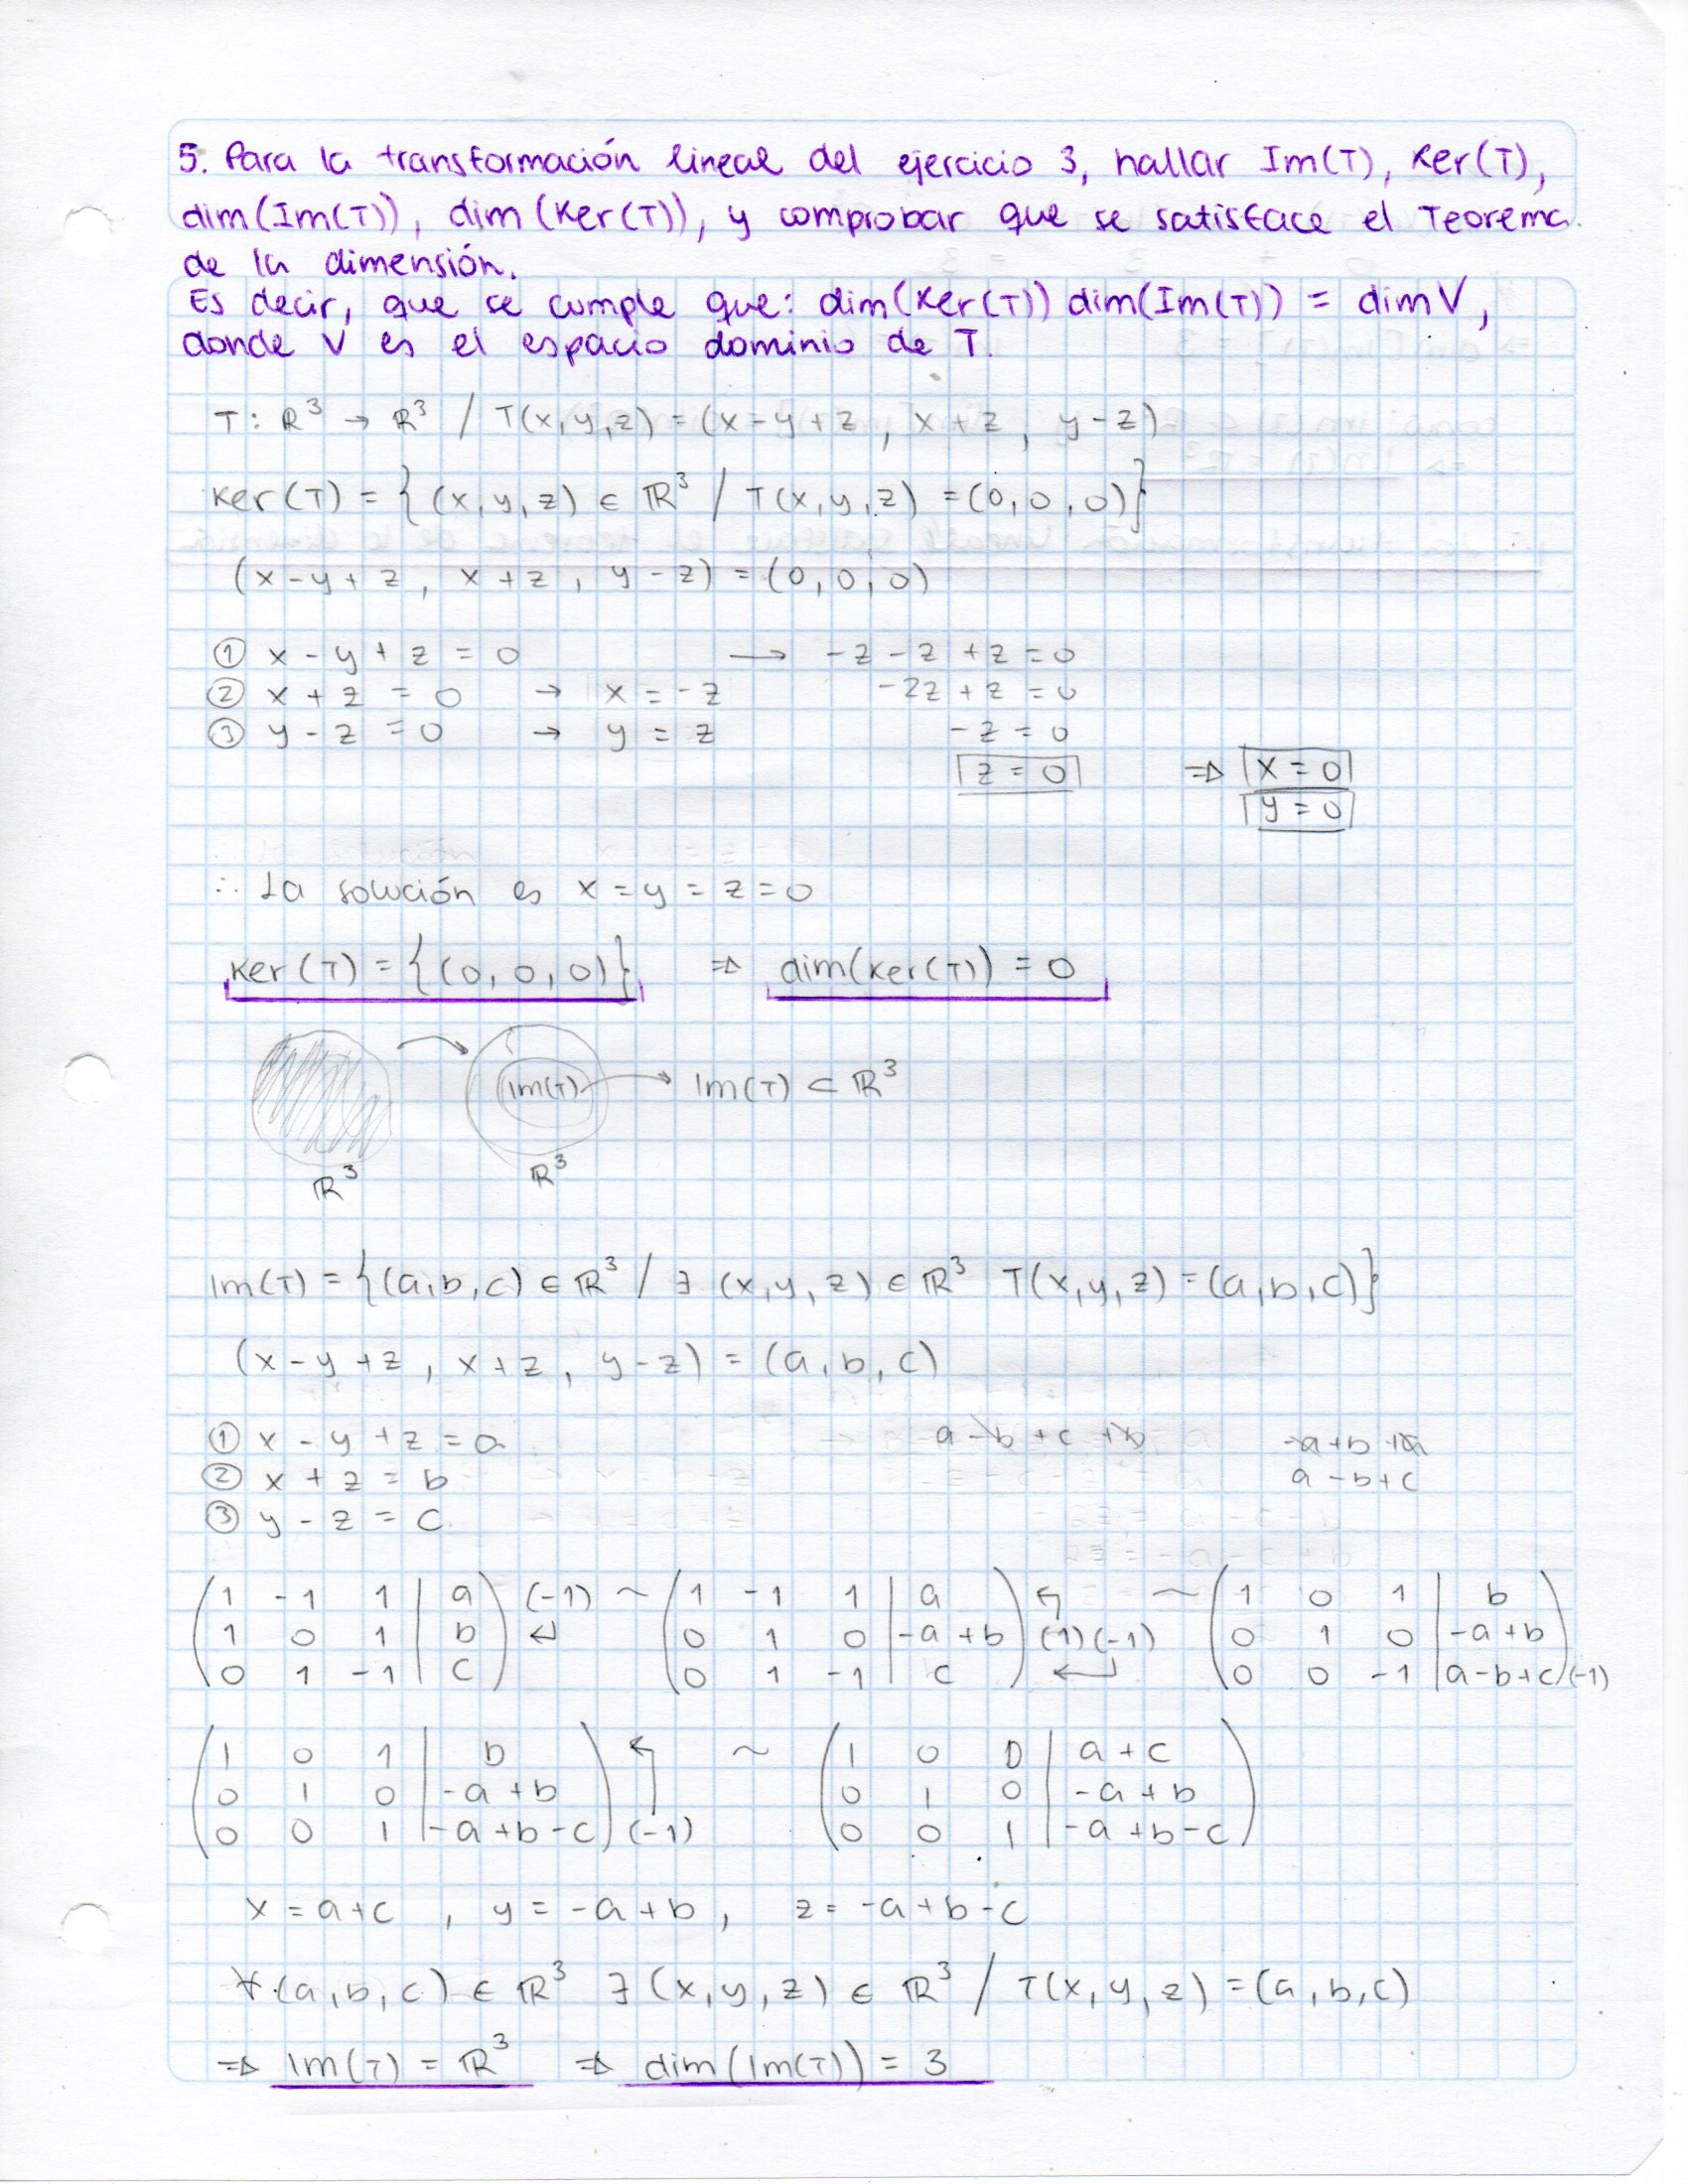 5. Para la transformación lineal del ejercicio 3, hallar Im(T), Ker(T),
dim(Im(T)), dim(Ker(T)), y comprobar que se satisface el Teorema
de la dimensión.
Es decir, que se cumple que: dim(Ker(T)) dim(Im(T)) = dim V,
donde V es el espacio dominio de T.
T: ℝ³ → ℝ³ / T(x,y,z) = (x-y+z, x+z, y-z)
Ker(T) = {(x,y,z) ∈ ℝ³ / T(x,y,z) = (0,0,0)}
(x-y+z, x+z, y-z) = (0,0,0)
① x-y+z = 0 → -z-z+z = 0
② x+z = 0 → x = -z -2z+z = 0
③ y-z = 0 → y = z -z = 0
z = 0 ⇒ x = 0
y = 0
∴ La solución es x=y=z=0
Ker(T) = {(0,0,0)} ⇒ dim(Ker(T)) = 0
Im(T) → Im(T) ⊂ ℝ³
ℝ³ ℝ³
Im(T) = {(a,b,c) ∈ ℝ³ / ∃ (x,y,z) ∈ ℝ³ T(x,y,z) = (a,b,c)}
(x-y+z, x+z, y-z) = (a,b,c)
① x-y+z = a a-b+c+b -a+b+a
② x+z = b a-b+c
③ y-z = c
(1 -1 1 | a) (-1) ~ (1 -1 1 | a) ↰ ~ (1 0 1 | b)
(1 0 1 | b) ↵ (0 1 0 | -a+b) (1)(-1) (0 1 0 | -a+b)
(0 1 -1 | c) (0 1 -1 | c) ↵ (0 0 -1 | a-b+c) (-1)
(1 0 1 | b) ↰ ~ (1 0 0 | a+c)
(0 1 0 | -a+b) (0 1 0 | -a+b)
(0 0 1 | -a+b-c) (-1) (0 0 1 | -a+b-c)
x = a+c, y = -a+b, z = -a+b-c
∀ (a,b,c) ∈ ℝ³ ∃ (x,y,z) ∈ ℝ³ / T(x,y,z) = (a,b,c)
⇒ Im(T) = ℝ³ ⇒ dim(Im(T)) = 3